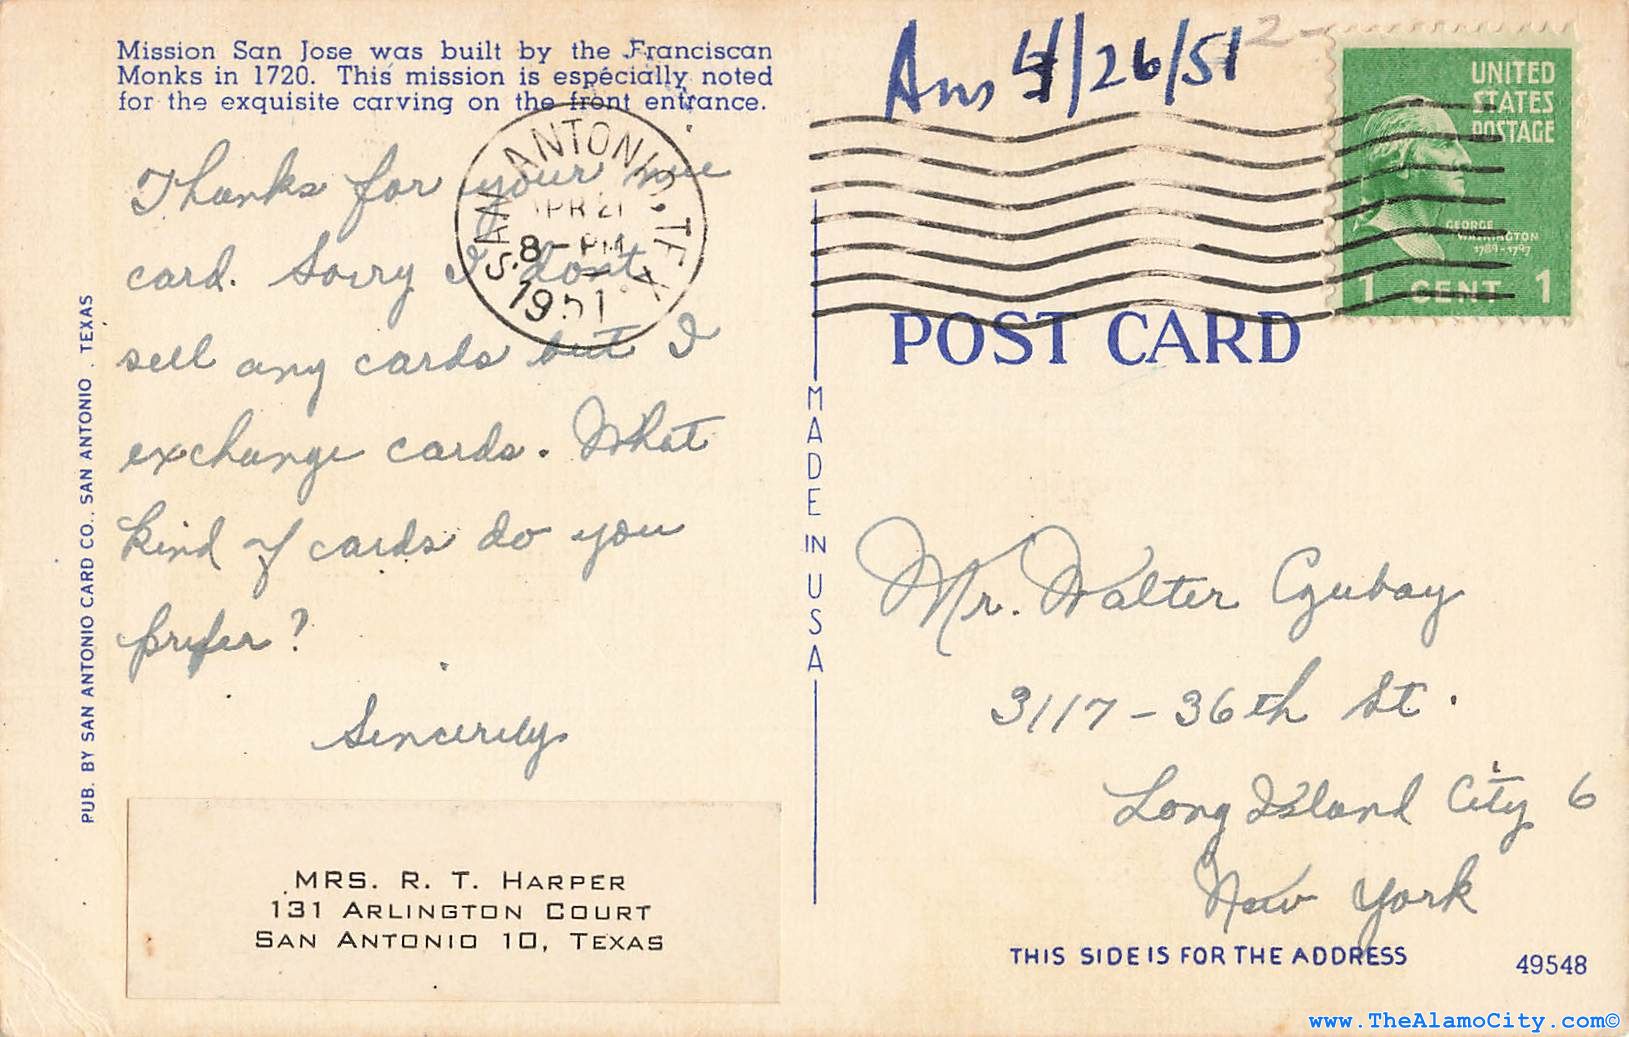 Mission San Jose was built by the Franciscan
Monks in 1720. This mission is especially noted
for the exquisite carving on the front entrance.
Ans 4/26/51
2-
UNITED
STATES
POSTAGE
GEORGE
WASHINGTON
1789-1797
1 CENT 1
SAN ANTONIO, TEX.
APR 21
8-PM
1951
POST CARD
Thanks for your nice
card. Sorry I don't
sell any cards but I
exchange cards. What
kind of cards do you
prefer?
Sincerely
MRS. R. T. HARPER
131 ARLINGTON COURT
SAN ANTONIO 10, TEXAS
PUB. BY SAN ANTONIO CARD CO., SAN ANTONIO, TEXAS
MADE IN USA
Mr. Walter Czubay
3117-36th St.
Long Island City 6
New York
THIS SIDE IS FOR THE ADDRESS
49548
www.TheAlamoCity.com©